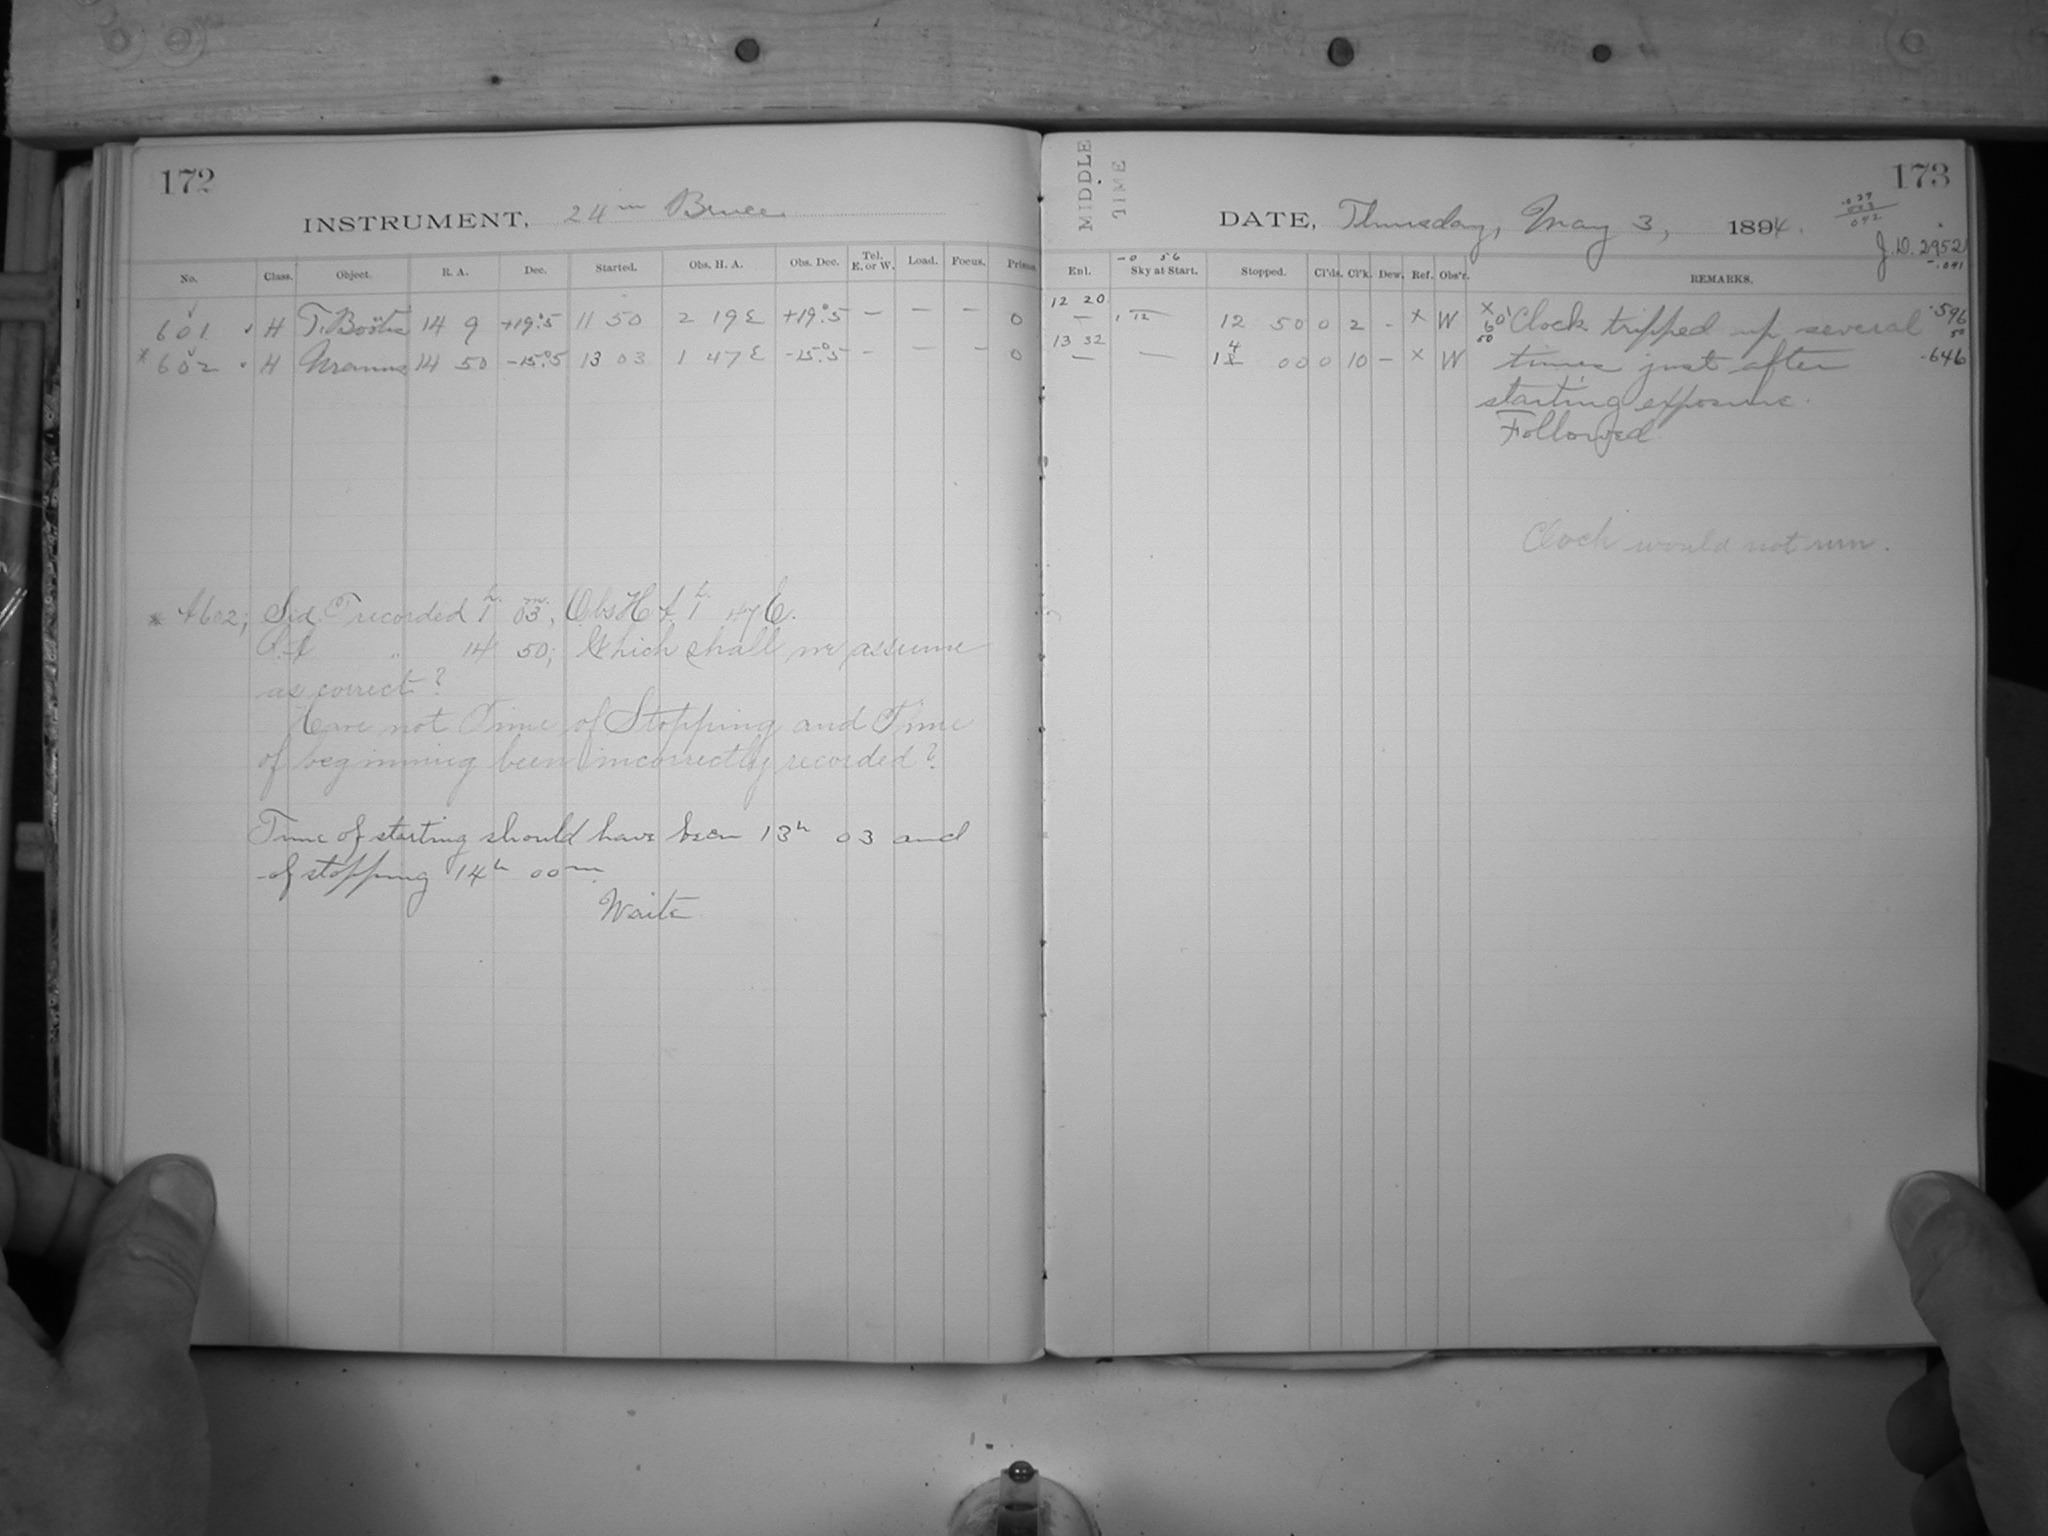 172
INSTRUMENT, 24 in Bruce
No. Class. Object. R. A. Dec. Started. Obs. H. A. Obs. Dec. Tel. E. or W. Load. Focus. Prisms.
601 H T. Boötis 14 9 +19°.5 11 50 2 19 E +19°.5 — — — 0
* 602 H Uranus 14 50 -15°.5 13 03 1 47 E -15°.5 — — — 0
* 602; Sid. T recorded 1h. 03m.; Obs H A 1h 47 E.
R.A. " 14 50; Which shall we assume
as correct?
Have not Time of Stopping and Time
of beginning been incorrectly recorded?
Time of starting should have been 13h 03 and
of stopping 14h 00m
Waite
MIDDLE
TIME
173
DATE, Thursday, May 3, 1894.
J.D. 2952
-.041
-0 56
Enl. Sky at Start. Stopped. Cl'ds. Cl'k. Dew. Ref. Obs'r. REMARKS.
12 20
— 1 12 12 50 0 2 - x W Clock tripped up several .596
13 32
— — 14 00 0 10 - x W times just after .646
starting exposure.
Followed
Clock would not run.